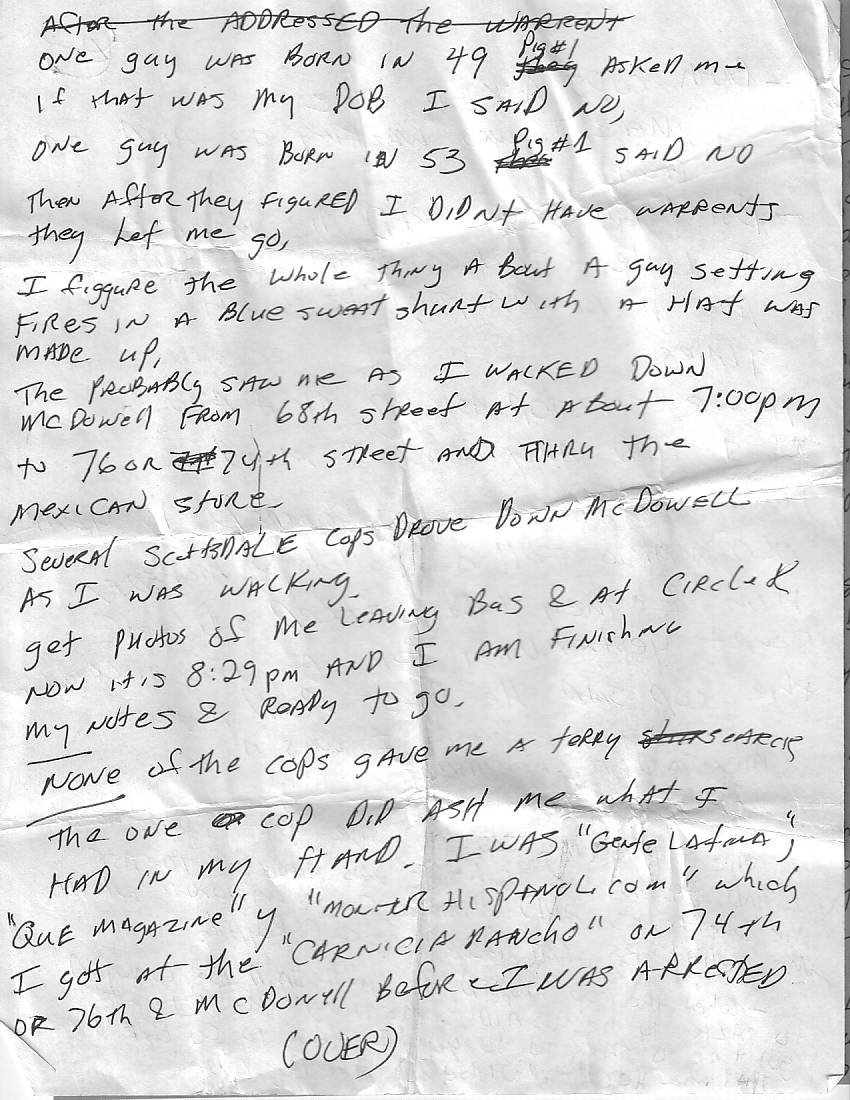 After the ADDRESSED the WARRENT
ONE guy WAS BORN IN 49 Pig #1 they ASKED me
If that WAS my DOB I SAID NO,
ONE guy WAS BORN IN 53 Pig #1 SAID NO
Then After they FIGURED I DIDNt HAVE WARRENTS
they Let me go,
I figgure the whole thing A Bout A guy setting
FIRES IN A Blue sweat shurt with A HAt WAS
MADE up,
The PROBABly SAW me AS I WALKED DOWN
McDowell FROM 68th street At About 7:00pm
to 76 OR 74th street AND THRU the
MEXICAN STORE.
SEVERAL SCOTTSDALE COPS DROVE DOWN McDOWELL
AS I WAS WALKING.
get PHOTOS of me LEAVING BUS & At CIRCLE K
NOW it is 8:29pm AND I AM FINISHING
my NOTES & READY to go.
NONE of the COPS gAVE me A tERRY SEARCH
the ONE COP DID ASK me what I
HAD IN my HAND. I WAS "Gente LAtINA",
"QUE MAGAZINE" y "MONITOR HISPANOL.COM" which
I got At the "CARNICIA RANCHO" ON 74th
OR 76th & McDowell Before I WAS ARRESTED
(OVER)